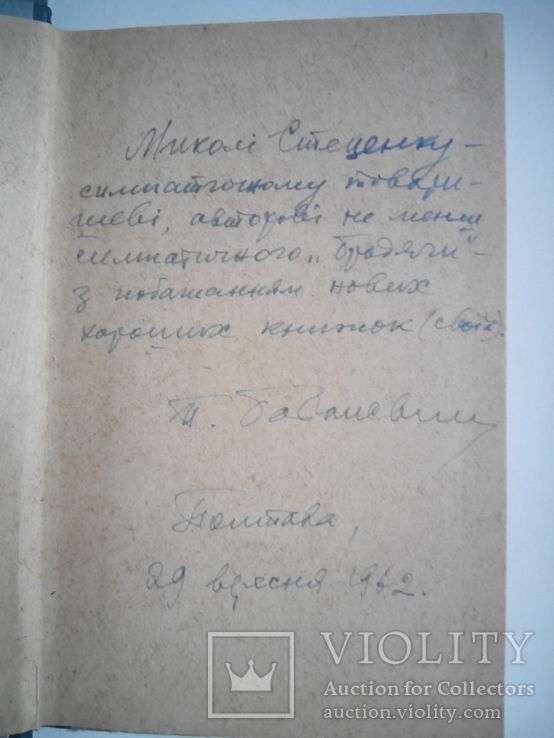 Миколі Стеценку –
симпатичному товари-
шеві, авторові не менш
симпатичного „Бродяги" –
з побажанням нових
хороших книжок (своїх).
Полтава,
29 вересня 1962.
VIOLITY
Auction for Collectors
auction.violity.com